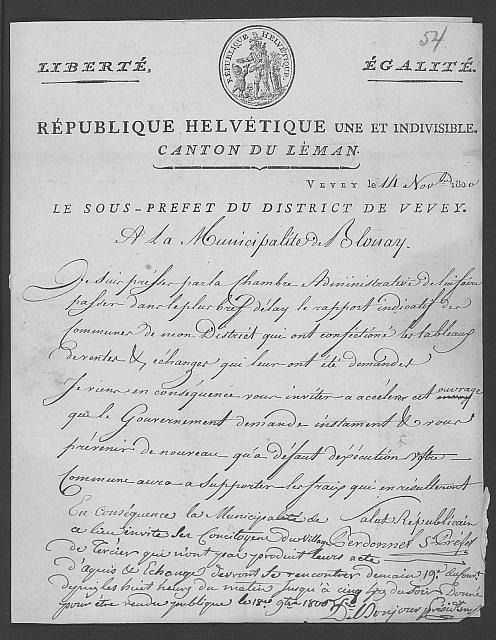 54.
LIBERTÉ,
RÉPUBLIQUE HELVÉTIQUE
ÉGALITÉ.
RÉPUBLIQUE HELVÉTIQUE UNE ET INDIVISIBLE.
CANTON DU LÉMAN.
VEVEY le 14 Nov.bre 1800
LE SOUS-PREFET DU DISTRICT DE VEVEY.
A la Municipalité de Blonay.
Je suis presser par la Chambre Administrative de lui faire
passer dans le plus bref délay le rapport indicatif des
Communes de mon District qui ont confectioné les tableaux
de ventes & echanges qui leur ont été demandés
Je viens en conséquence vous inviter a accélérer cet ouvrage
que le Gouvernement demande instament & vous
prévenir de nouveau qu'a défaut d'exécution votre
Commune aura a supporter les fraix qui en résulteront
Salut Républicain
Perdonnet S Préfet
En conséquence la Municipalité de
ce lieu invite ses Concitoyens du Village
de Tercier qui n'ont pas produit leurs acte
d'aquis & Echange devront se rencontrer demain 19e du court
depuis les huit heures du matin jusqu'a cinq du soir Donné
pour être rendu publique le 18e 9bre 1800
D. Bonjour présidt